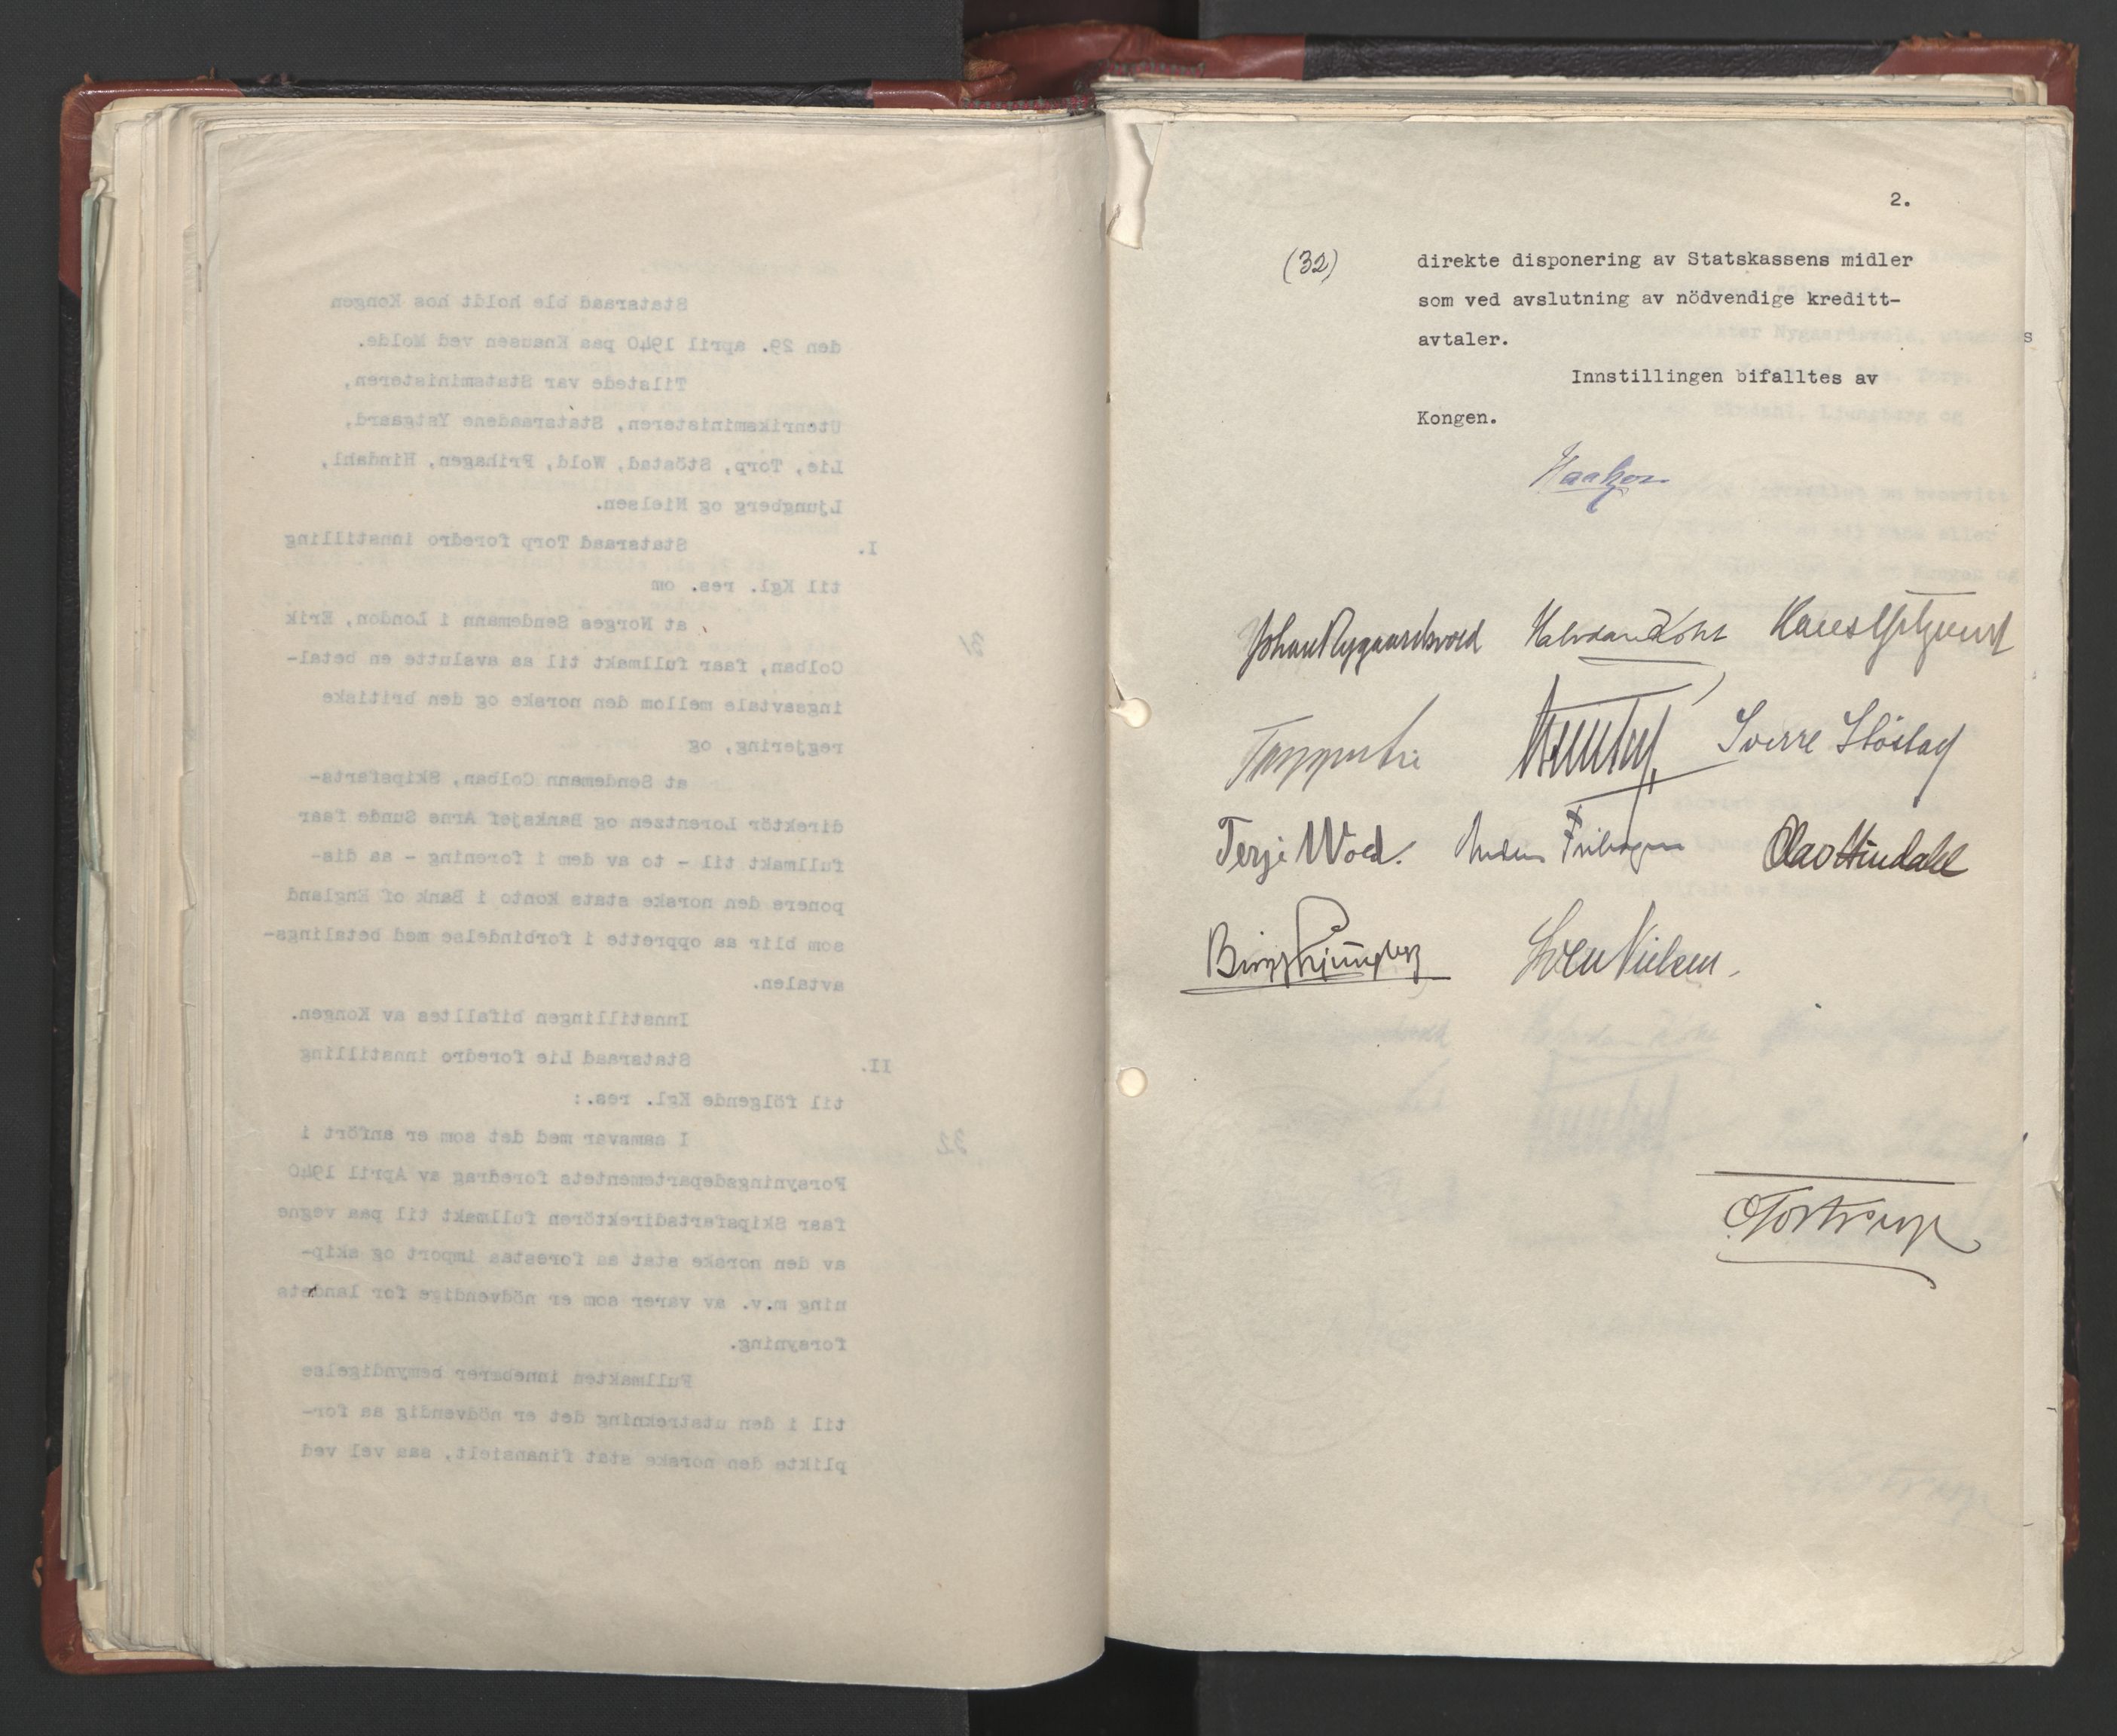 Statsraad ble holdt hos Kongen
den 29. april 1940 paa Knausen ved Molde.
Tilstede var Statsministeren,
Utenriksministeren, Statsraadene Ystgaard,
Lie, Torp, Stöstad, Wold, Frihagen, Hindahl,
Ljungberg og Nielsen.
I. Statsraad Torp foredro innstilling
til Kgl. res. om
31 at Norges Sendemann i London, Erik
Colban, faar fullmakt til aa avslutte en betal-
ingsavtale mellom den norske og den britiske
regjering, og
at Sendemann Colban, Skipsfarts-
direktör Lorentzen og Banksjef Arne Sunde faar
fullmakt til - to av dem i forening - aa dis-
ponere den norske stats konto i Bank of England
som blir aa opprette i forbindelse med betalings-
avtalen.
Innstillingen bifalltes av Kongen.
II. Statsraad Lie foredro innstilling
til fölgende Kgl. res.:
32 I samsvar med det som er anfört i
Forsyningsdepartementets foredrag av April 1940
faar Skipsfartsdirektören fullmakt til paa vegne
av den norske stat aa forestaa import og skip-
ning m.v. av varer som er nödvendige for landets
forsyning.
Fullmakten innebærer bemyndigelse
til i den utstrekning det er nödvendig aa for-
plikte den norske stat finansielt, saa vel ved
2.
(32) direkte disponering av Statskassens midler
som ved avslutning av nödvendige kreditt-
avtaler.
Innstillingen bifalltes av
Kongen.
Haakon
Johan Nygaardsvold Halvdan Koht
Trygve Lie Sverre Stöstad
Terje Wold. Anders Frihagen Olav Hindahl
Birger Ljungberg Sven Nielsen.